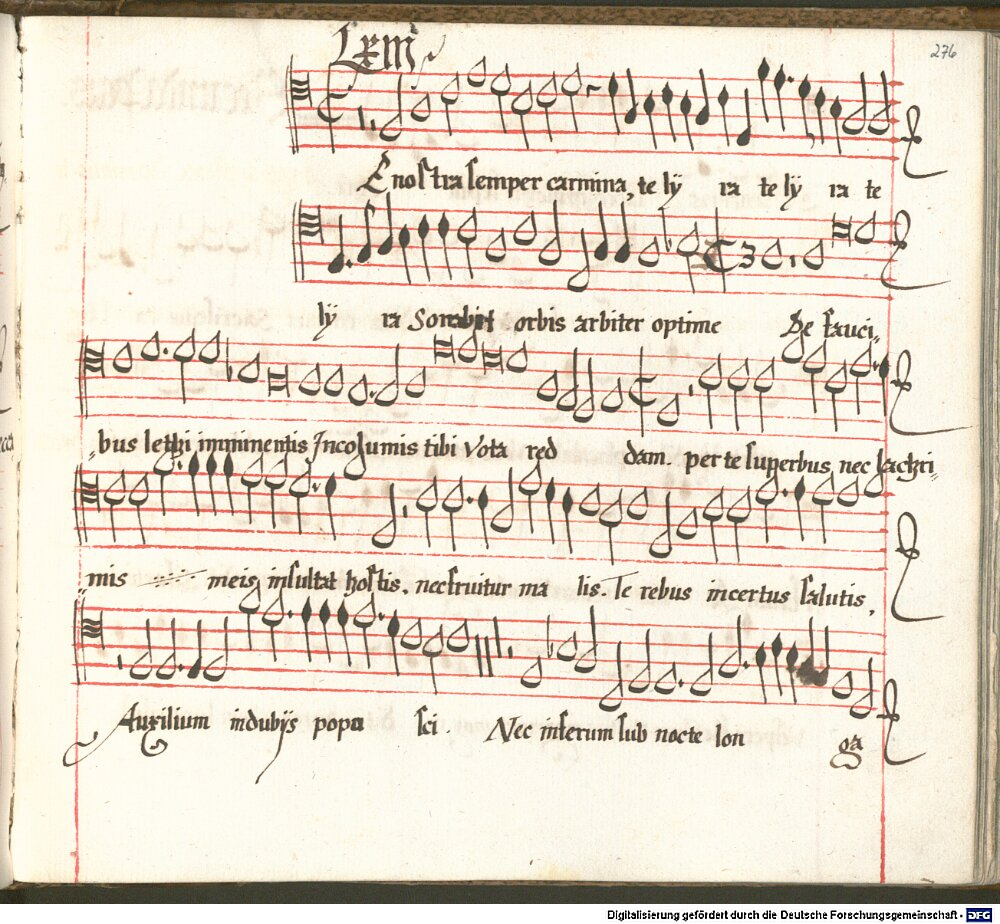 Lxiij
276
Te nostra semper carmina, te ly ra te ly ra te
ly ra Sonabit orbis arbiter optime De fauci„
„bus lethi imminentis Incolumis tibi Vota red dam. per te superbus nec lachri„
„mis meis insultat hostis, nec fruitur ma lis. Te rebus incertus salutis,
Auxilium in dubijs popo sci. Nec inferum sub nocte lon ga
Digitalisierung gefördert durch die Deutsche Forschungsgemeinschaft - DFG